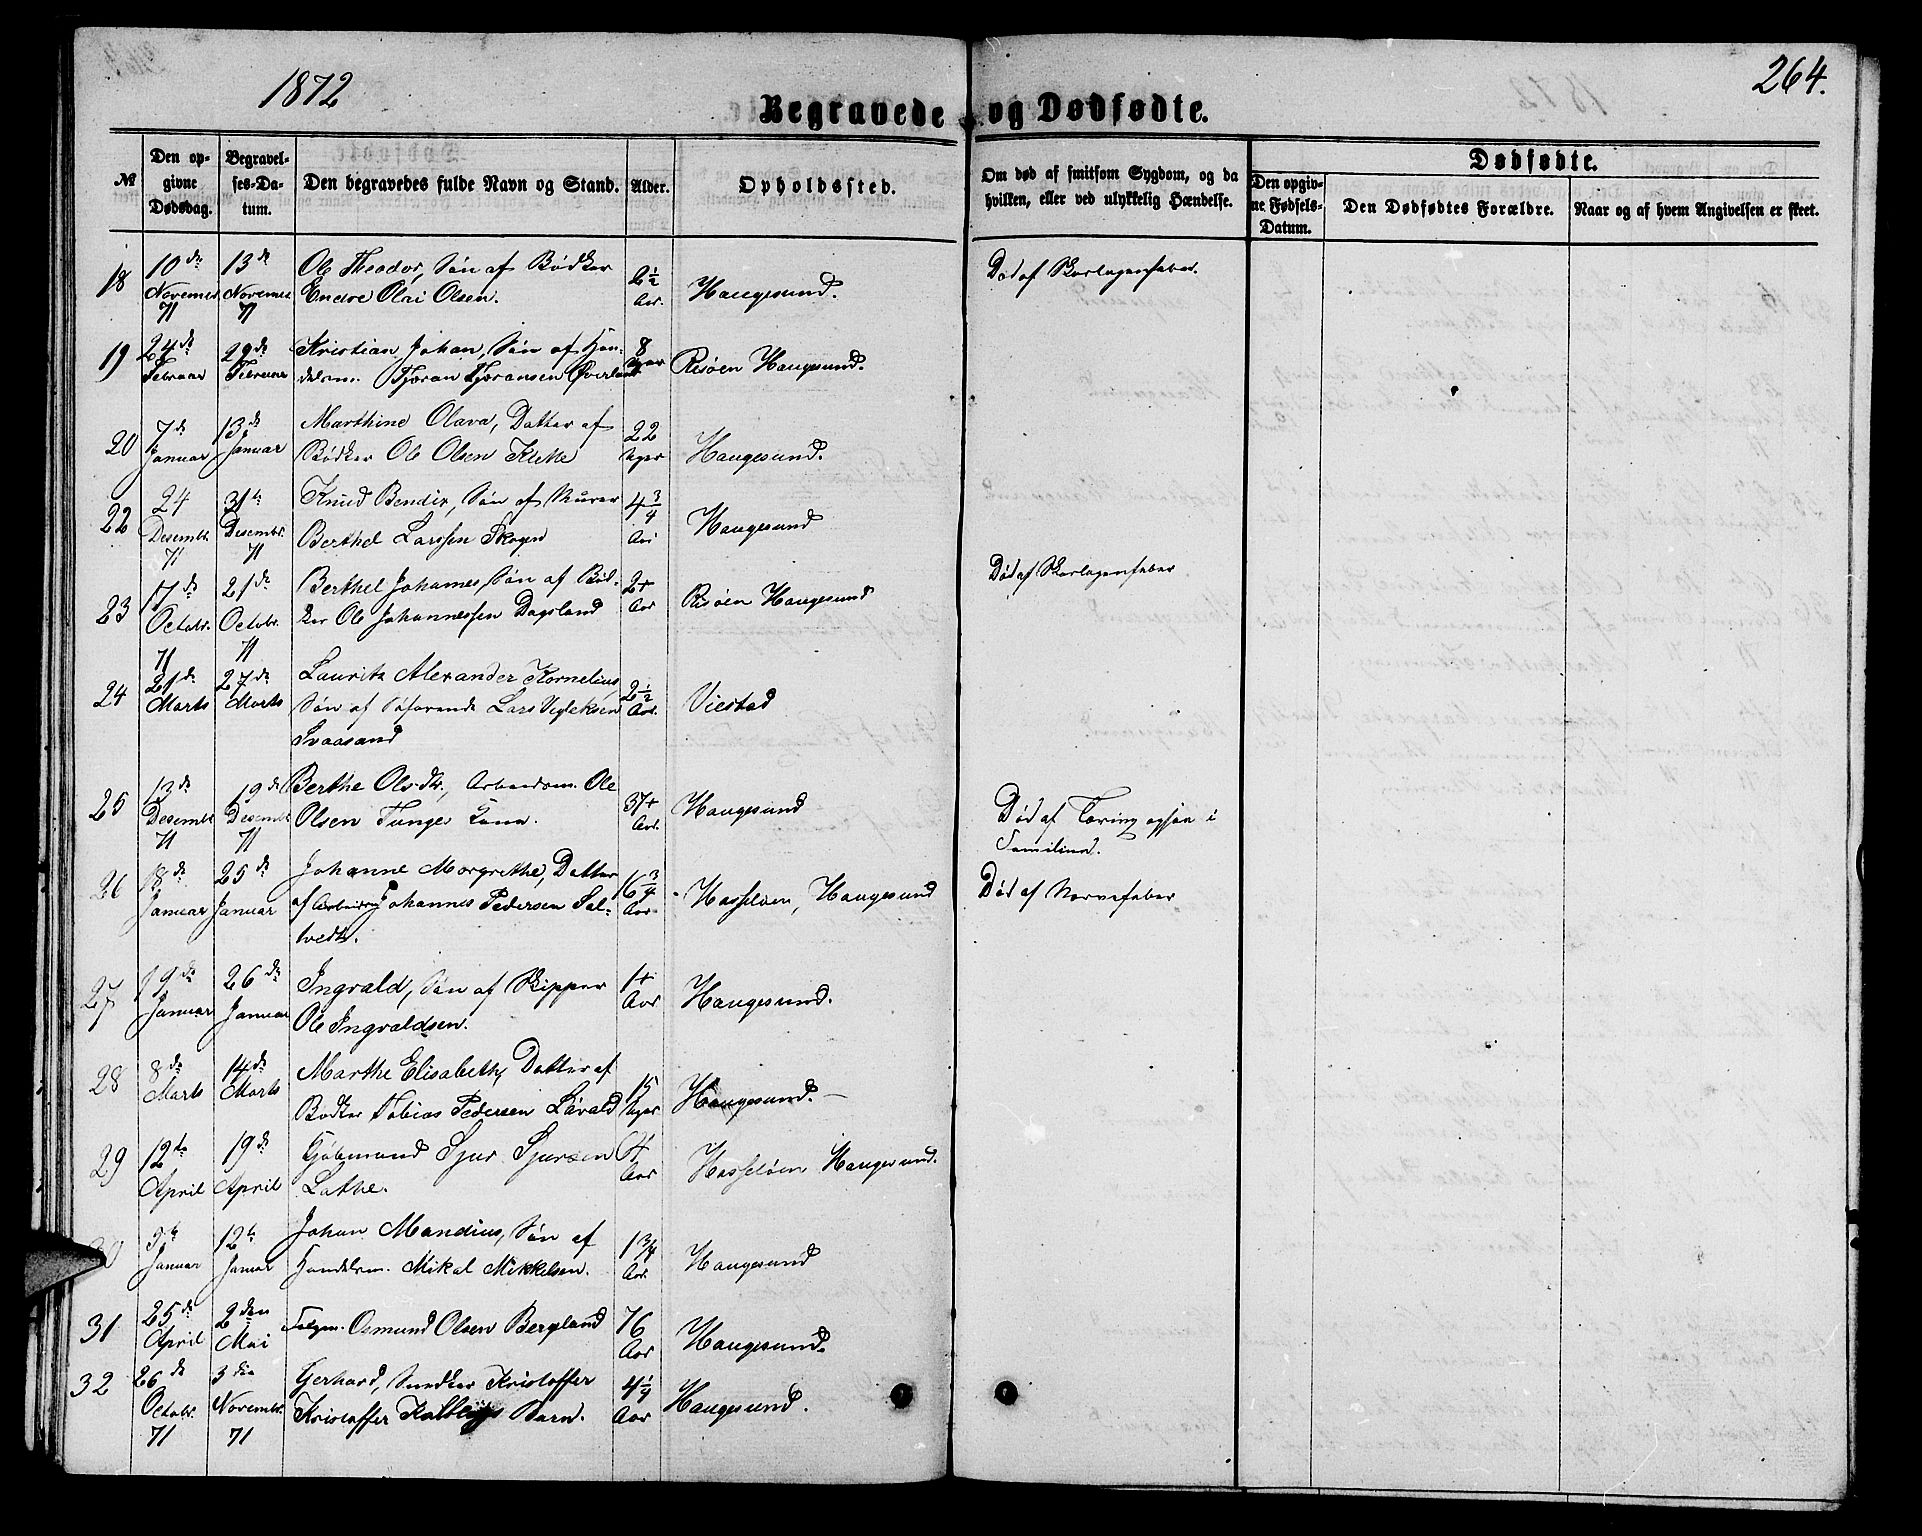 1872
264.
Begravede og Dødfødte.
№
Den op-
givne
Dødsdag.
Begravel-
ses-Da-
tum.
Den begravedes fulde Navn og Stand.
Alder.
Opholdssted.
Om død af smitsom Sygdom, og da
hvilken, eller ved ulykkelig Hændelse.
Dødfødte.
Den opgiv-
ne Fødsels-
Datum.
Den Dødfødtes Forældre.
Naar og af hvem Angivelsen er skeet.
18 10de 13de Ole Theodor, Søn af Bødker 2½ Haugesund. Død af Skarlagensfeber.
Novembr Novembr Endre Olai Olsen. Aar.
71 71
19 24de 29de Kristian Johan, Søn af Han- 8 Risøen Haugesund.
Februar Februar delsm. Tjøran Tjøransen Øverland Uger
20 7de 13de Marthine Olava, Datter af 22 Haugesund.
Januar Januar Bødker Ole Olsen Uger
22 24 31te Knud Bendix, Søn af Murer 4¾ Haugesund
Desembr. Desembr. Berthel Larssen Skogen Aar
71 71
23 17de 21de Berthel Johannes, Søn af Bød- 2+ Risøen Haugesund Død af Skarlagensfeber
Octobr. Octobr. ker Ole Johannessen Dagsland Aar
71 71
24 21de 27de Lauritz Alexander Kornelius, 2½ Viestad
Marts Marts Søn af Søfarende Lars Aar.
Svaasand
25 13de 19de Berthe Olsdtr., Arbeidsm. Ole 37+ Haugesund Død af Tæring ogsaa i
Desembr Desembr Olsen Tunges Kone. Aar. Familien.
71 71
26 18de 25de Johanne Morgrethe, Datter 6¾ Hasseløen, Haugesund Død af Nervefeber
Januar Januar af Arbeidsm Johannes Pedersen Sal- Aar
tvedt.
27 19de 26de Ingvald, Søn af Skipper 1+ Haugesund.
Januar Januar Ole Ingvaldsen. Aar
28 8de 14de Marthe Elisabeth, Datter af 15 Haugesund.
Marts Marts Bødker Tobias Pedersen Uger
29 12te 19de Kjøbmand Sjur Sjursen Hasseløen Haugesund.
April April Lothe. Aar
30 12te Johan Mandius, Søn af 1¾ Haugesund
Januar Januar Handelsm. Mikal Mikkelsen. Aar.
31 25de 2den Osmund Olsen Bergland 76 Haugesund.
April Mai Aar
32 26de 3die Gerhard, Snedker Kristoffer 4¼ Haugesund.
Octobr. Novembr. Kristoffer Barn. Aar
71 71